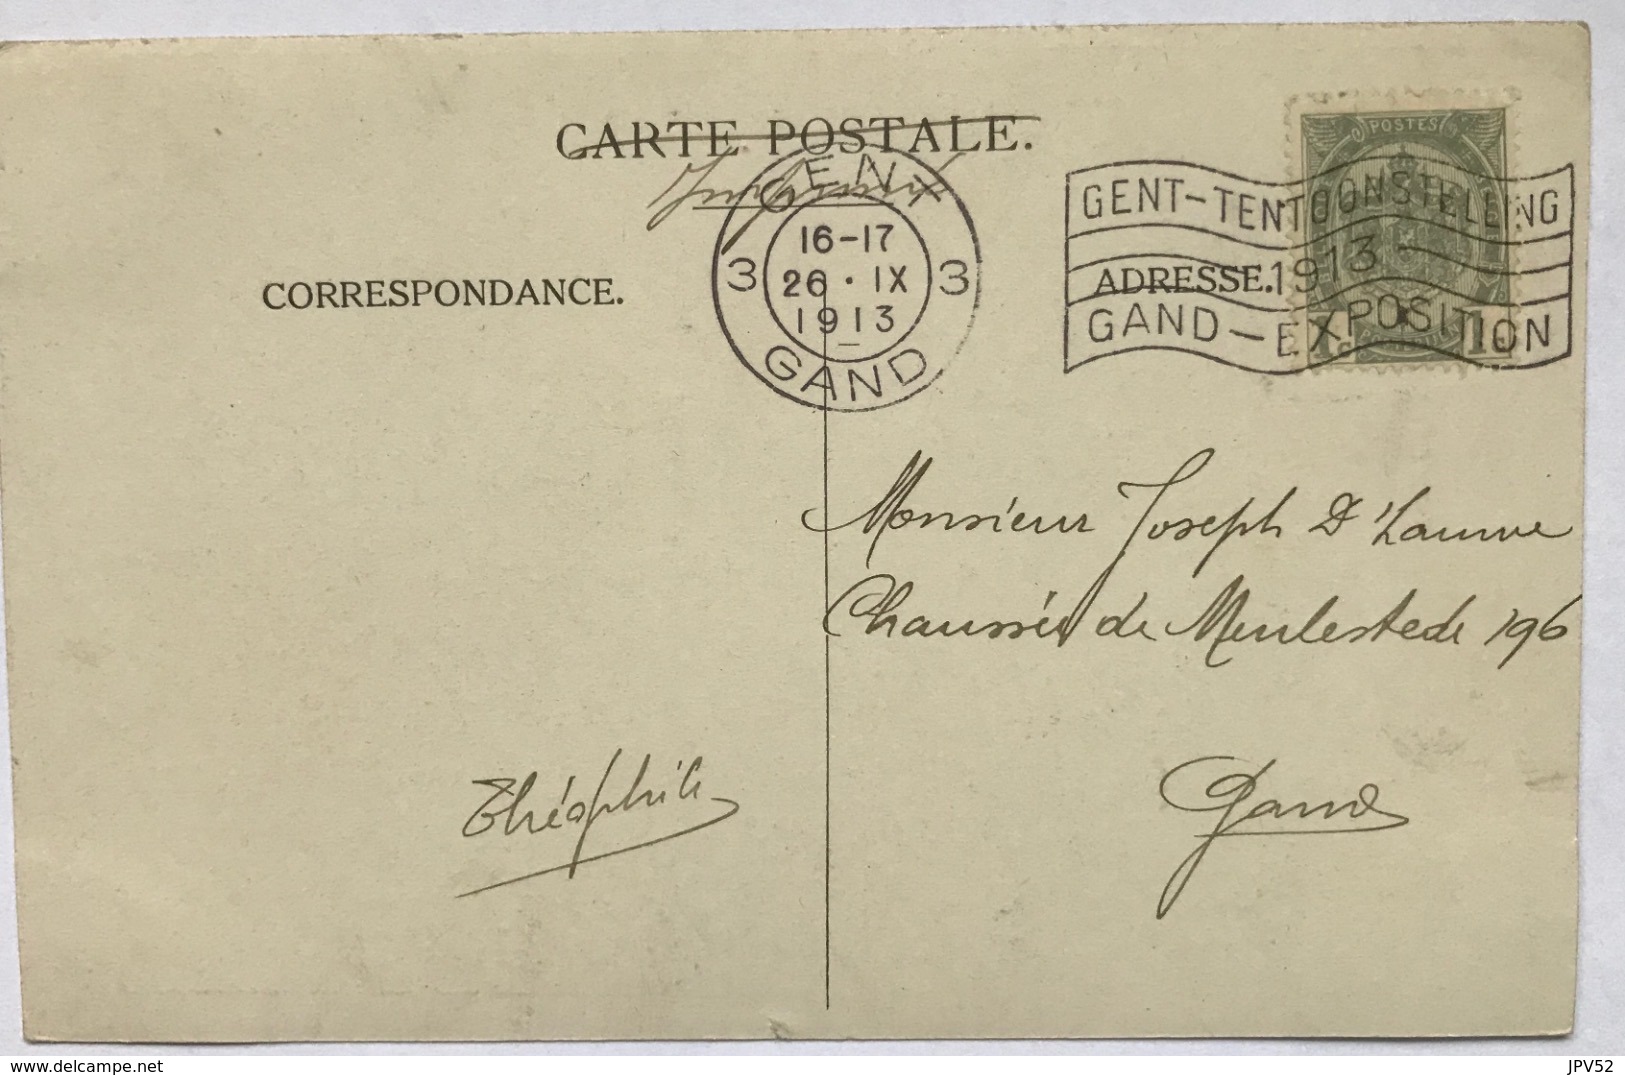 CARTE POSTALE.
GENT
16-17
3 26 · IX 3
1913
GAND
POSTES
GENT-TENTOONSTELLING
1913
GAND-EXPOSITION
1c 1c
CORRESPONDANCE.
ADRESSE.
Monsieur Joseph
Chaussée de Meulestede 196
Gand
Théophile
www.delcampe.net
JPV52